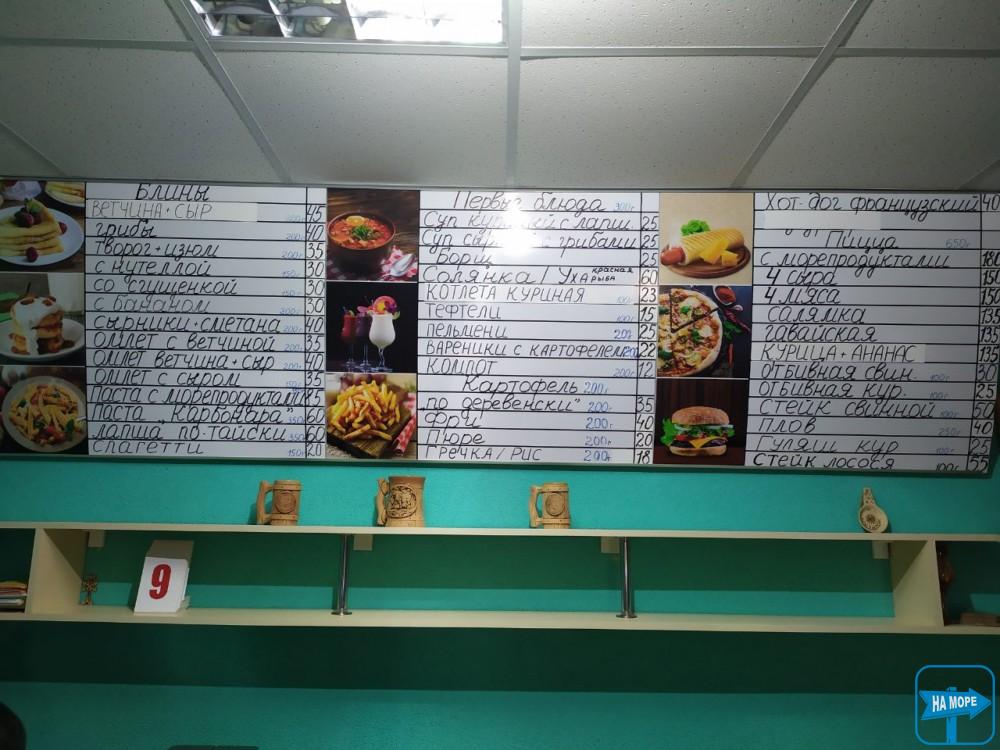 Блины
ВЕТЧИНА+СЫР 45
грибы 200г 40
творог+изюм 35
с нутеллой 150г 30
со сгущенкой 150г 30
с бананом 200г 30
сырники·сметана 200г 40
омлет с ветчиной 200г 35
омлет ветчина+сыр 200г 40
омлет с сыром 150г 35
паста с морепродуктами
паста "Карбонара" 350г 60
лапша по-тайски 350г 60
спагетти 150г 20
Первые блюда 300г
Суп куриный с лапш. 25
Суп с грибами 25
Борщ 25
Солянка / Уха красная рыба 60
КОТЛЕТА КУРИНАЯ 100г 23
тефтели 100г 15
пельмени 200г 25
вареники с картофелем 22
компот 200г 12
Картофель 200г
"по деревенски" 200г 35
Фри 200г 40
Пюре 200г 20
Гречка / РИС 200г 18
Хот-дог французский 40
Пицца 650г
с морепродуктами 180
4 сыра 150
4 мяса 150
салямка 135
гавайская 135
КУРИЦА+АНАНАС 135
отбивная свин. 100г 30
отбивная кур. 100г 25
Стейк свинной 100г 50
плов 250г 40
Гуляш кур 100г 25
Стейк лосося 100г 55
9
НА МОРЕ